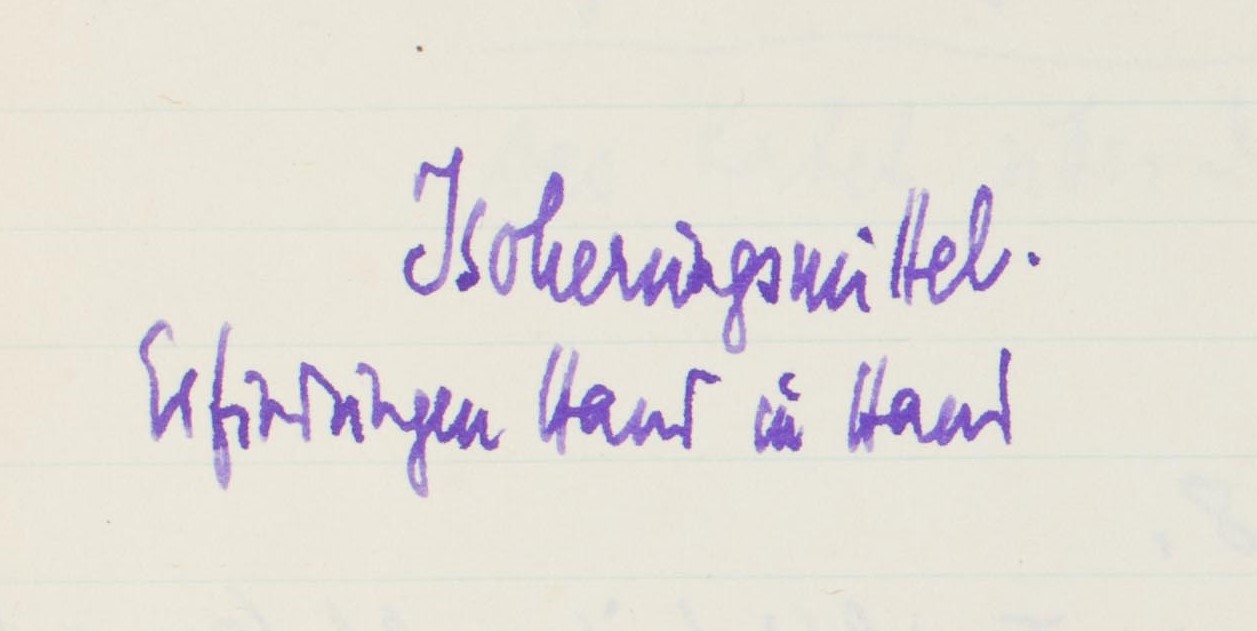 Isolierungsmittel.
Erfindungen Hand in Hand